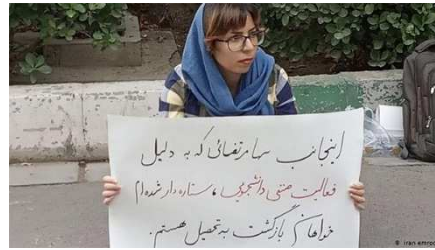 اینجانب سها مرتضائی که به دلیل
فعالیت صنفی دانشجویی، ستاره دار شده‌ام
خواهان بازگشت به تحصیل هستم.